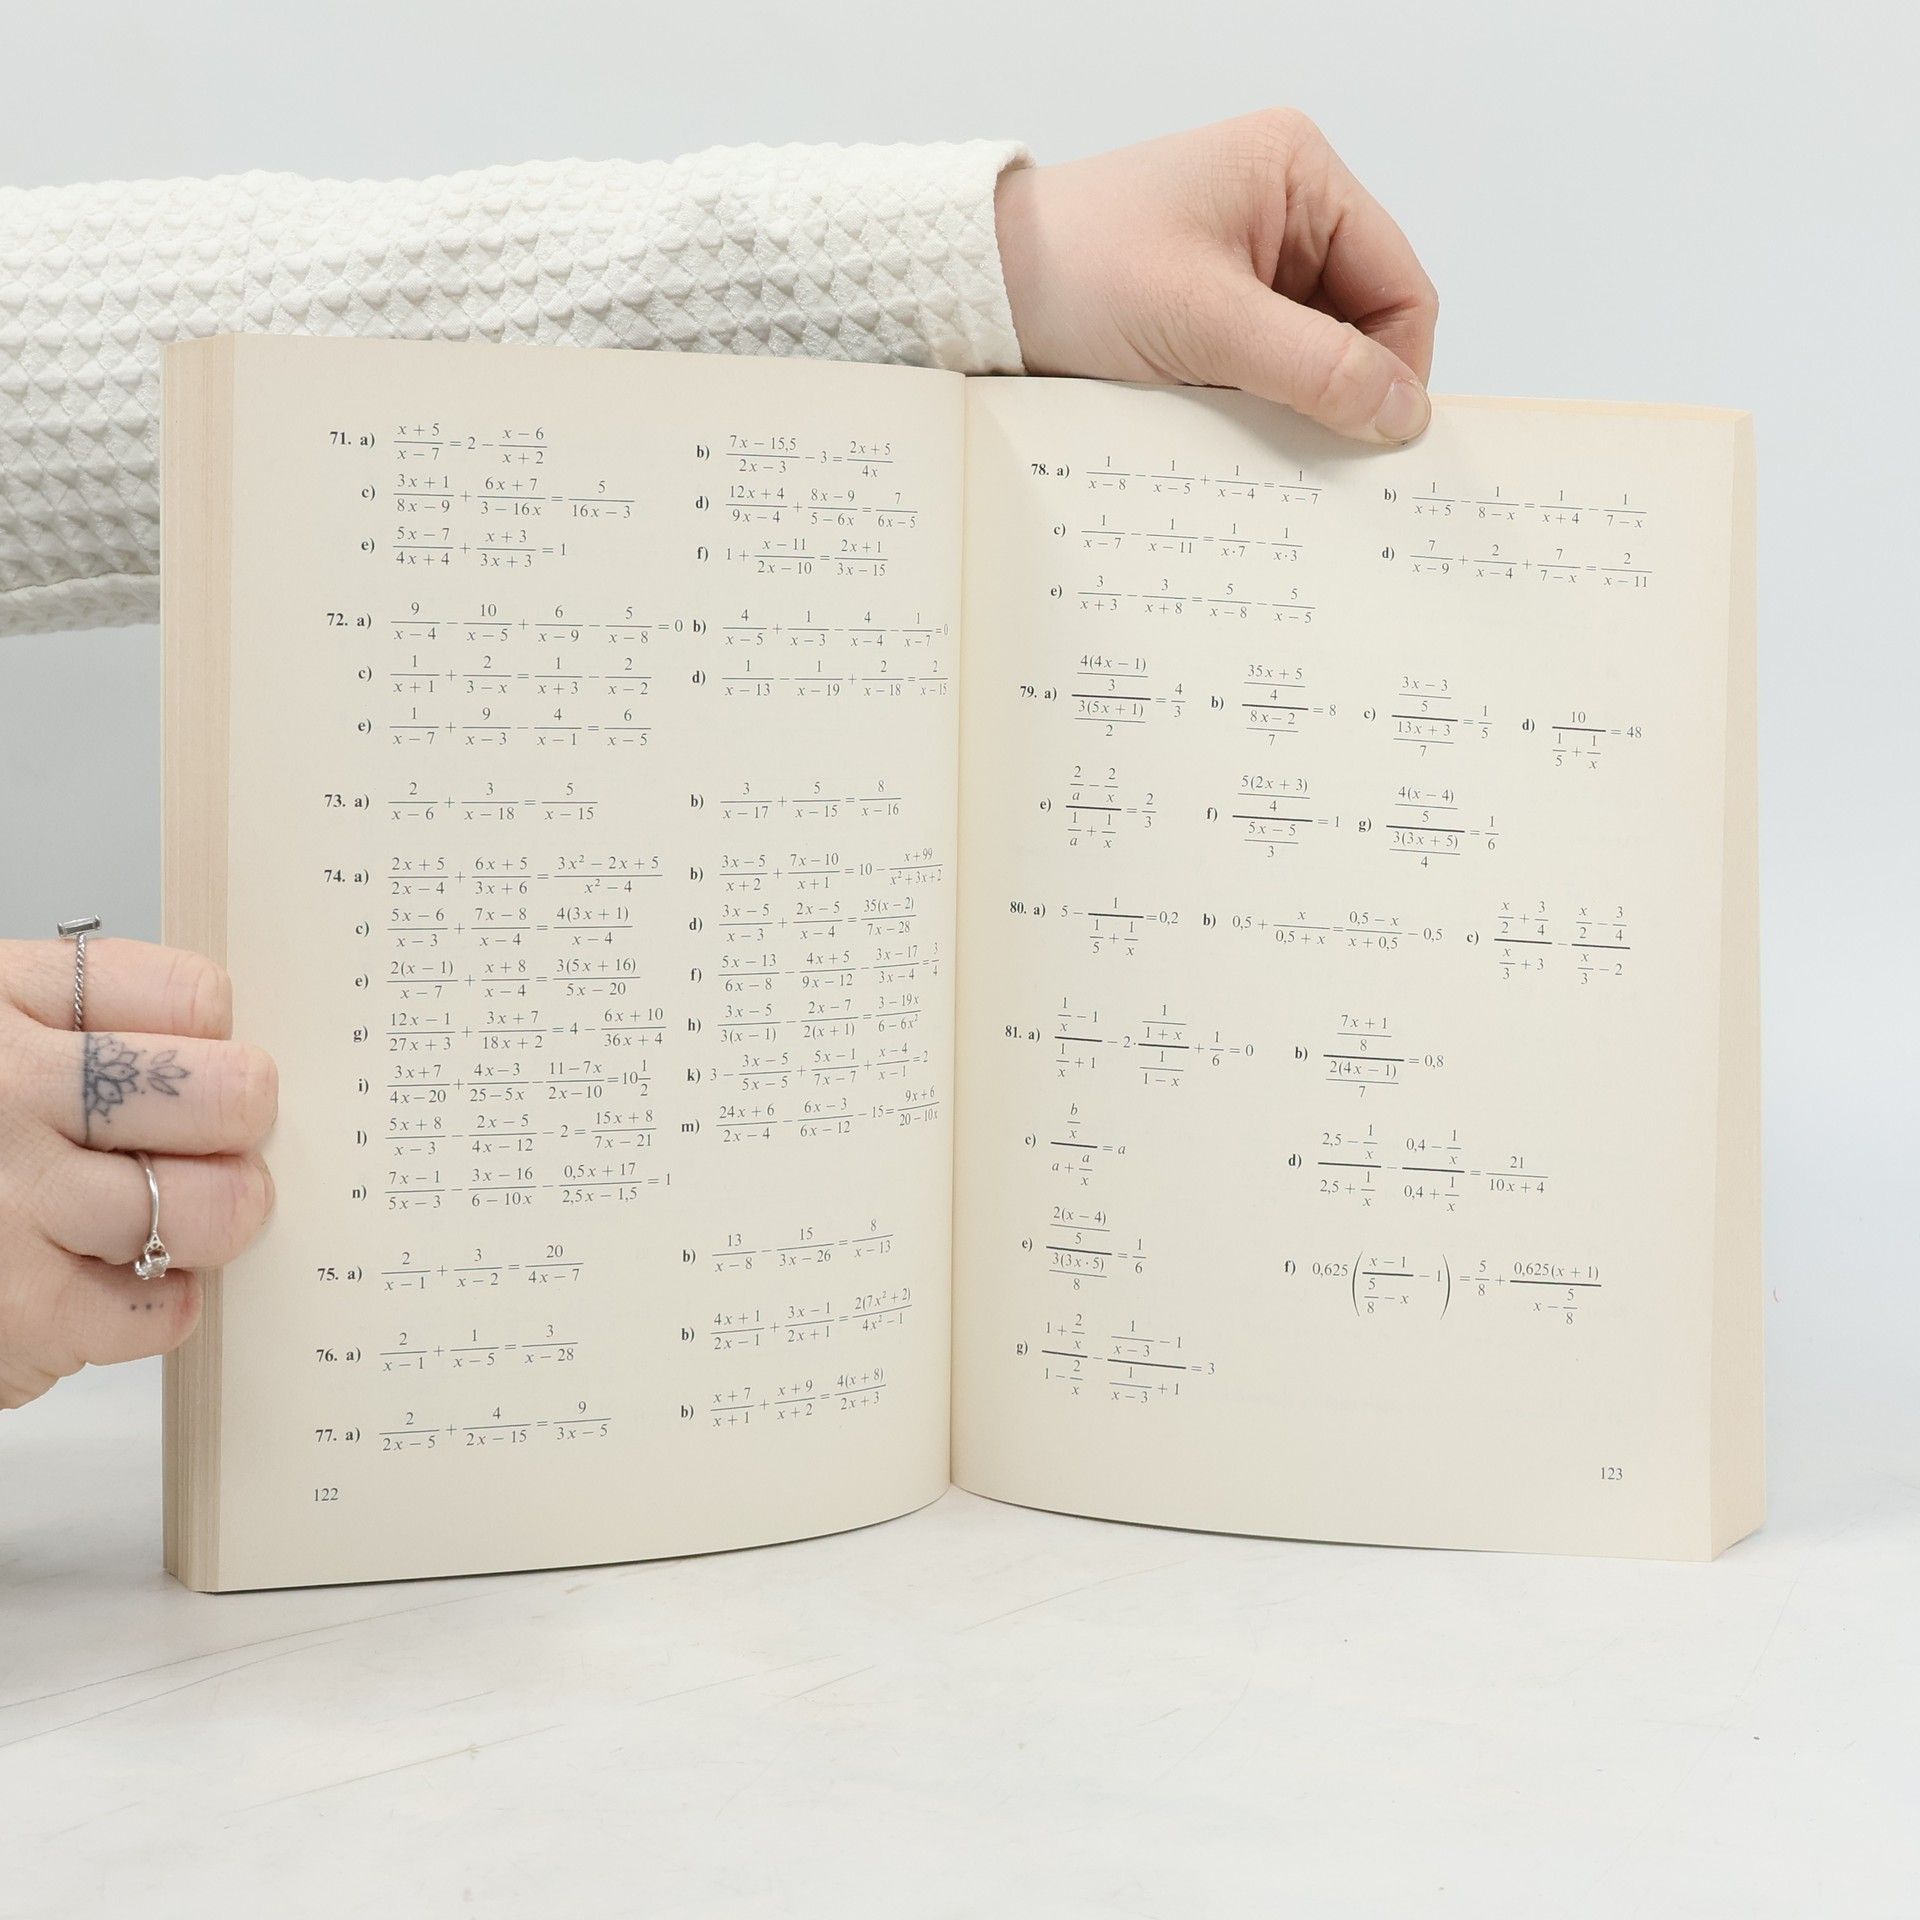 71. a) (x + 5)/(x − 7) = 2 − (x − 6)/(x + 2) b) (7x − 15,5)/(2x − 3) − 3 = (2x + 5)/(4x)
c) (3x + 1)/(8x − 9) + (6x + 7)/(3 − 16x) = 5/(16x − 3) d) (12x + 4)/(9x − 4) + (8x − 9)/(5 − 6x) = 7/(6x − 5)
e) (5x − 7)/(4x + 4) + (x + 3)/(3x + 3) = 1 f) 1 + (x − 11)/(2x − 10) = (2x + 1)/(3x − 15)
72. a) 9/(x − 4) − 10/(x − 5) + 6/(x − 9) − 5/(x − 8) = 0 b) 4/(x − 5) + 1/(x − 3) − 4/(x − 4) − 1/(x − 7) = 0
c) 1/(x + 1) + 2/(3 − x) = 1/(x + 3) − 2/(x − 2) d) 1/(x − 13) − 1/(x − 19) + 2/(x − 18) = 2/(x − 15)
e) 1/(x − 7) + 9/(x − 3) − 4/(x − 1) = 6/(x − 5)
73. a) 2/(x − 6) + 3/(x − 18) = 5/(x − 15) b) 3/(x − 17) + 5/(x − 15) = 8/(x − 16)
74. a) (2x + 5)/(2x − 4) + (6x + 5)/(3x + 6) = (3x² − 2x + 5)/(x² − 4) b) (3x − 5)/(x + 2) + (7x − 10)/(x + 1) = 10 − (x + 99)/(x² + 3x + 2)
c) (5x − 6)/(x − 3) + (7x − 8)/(x − 4) = 4(3x + 1)/(x − 4) d) (3x − 5)/(x − 3) + (2x − 5)/(x − 4) = 35(x − 2)/(7x − 28)
e) 2(x − 1)/(x − 7) + (x + 8)/(x − 4) = 3(5x + 16)/(5x − 20) f) (5x − 13)/(6x − 8) − (4x + 5)/(9x − 12) − (3x − 17)/(3x − 4) = 3/4
g) (12x − 1)/(27x + 3) + (3x + 7)/(18x + 2) = 4 − (6x + 10)/(36x + 4) h) (3x − 5)/(3(x − 1)) − (2x − 7)/(2(x + 1)) = (3 − 19x)/(6 − 6x²)
i) (3x + 7)/(4x − 20) + (4x − 3)/(25 − 5x) − (11 − 7x)/(2x − 10) = 10 1/2 k) 3 − (3x − 5)/(5x − 5) + (5x − 1)/(7x − 7) + (x − 4)/(x − 1) = 2
l) (5x + 8)/(x − 3) − (2x − 5)/(4x − 12) − 2 = (15x + 8)/(7x − 21) m) (24x + 6)/(2x − 4) − (6x − 3)/(6x − 12) − 15 = (9x + 6)/(20 − 10x)
n) (7x − 1)/(5x − 3) − (3x − 16)/(6 − 10x) − (0,5x + 17)/(2,5x − 1,5) = 1
75. a) 2/(x − 1) + 3/(x − 2) = 20/(4x − 7) b) 13/(x − 8) − 15/(3x − 26) = 8/(x − 13)
76. a) 2/(x − 1) + 1/(x − 5) = 3/(x − 28) b) (4x + 1)/(2x − 1) + (3x − 1)/(2x + 1) = 2(7x² + 2)/(4x² − 1)
77. a) 2/(2x − 5) + 4/(2x − 15) = 9/(3x − 5) b) (x + 7)/(x + 1) + (x + 9)/(x + 2) = 4(x + 8)/(2x + 3)
122
78. a) 1/(x − 8) − 1/(x − 5) + 1/(x − 4) = 1/(x − 7) b) 1/(x + 5) − 1/(8 − x) = 1/(x + 4) − 1/(7 − x)
c) 1/(x − 7) − 1/(x − 11) = 1/(x·7) − 1/(x·3) d) 7/(x − 9) + 2/(x − 4) + 7/(7 − x) = 2/(x − 11)
e) 3/(x + 3) − 3/(x + 8) = 5/(x − 8) − 5/(x − 5)
79. a) (4(4x − 1)/3)/(3(5x + 1)/2) = 4/3 b) ((35x + 5)/4)/((8x − 2)/7) = 8 c) ((3x − 3)/5)/((13x + 3)/7) = 1/5 d) 10/(1/5 + 1/x) = 48
e) (2/a − 2/x)/(1/a + 1/x) = 2/3 f) (5(2x + 3)/4)/((5x − 5)/3) = 1 g) (4(x − 4)/5)/(3(3x + 5)/4) = 1/6
80. a) 5 − 1/(1/5 + 1/x) = 0,2 b) 0,5 + x/(0,5 + x) = (0,5 − x)/(x + 0,5) − 0,5 c) (x/2 + 3/4)/(x/3 + 3) − (x/2 − 3/4)/(x/3 − 2)
81. a) (1/x − 1)/(1/x + 1) − 2·(1/(1 + x))/(1/(1 − x)) + 1/6 = 0 b) ((7x + 1)/8)/(2(4x − 1)/7) = 0,8
c) (b/x)/(a + a/x) = a d) (2,5 − 1/x)/(2,5 + 1/x) − (0,4 − 1/x)/(0,4 + 1/x) = 21/(10x + 4)
e) (2(x − 4)/5)/(3(3x·5)/8) = 1/6 f) 0,625((x − 1)/(5/8 − x) − 1) = 5/8 + 0,625(x + 1)/(x − 5/8)
g) (1 + 2/x)/(1 − 2/x) − (1/(x − 3) − 1)/(1/(x − 3) + 1) = 3
123